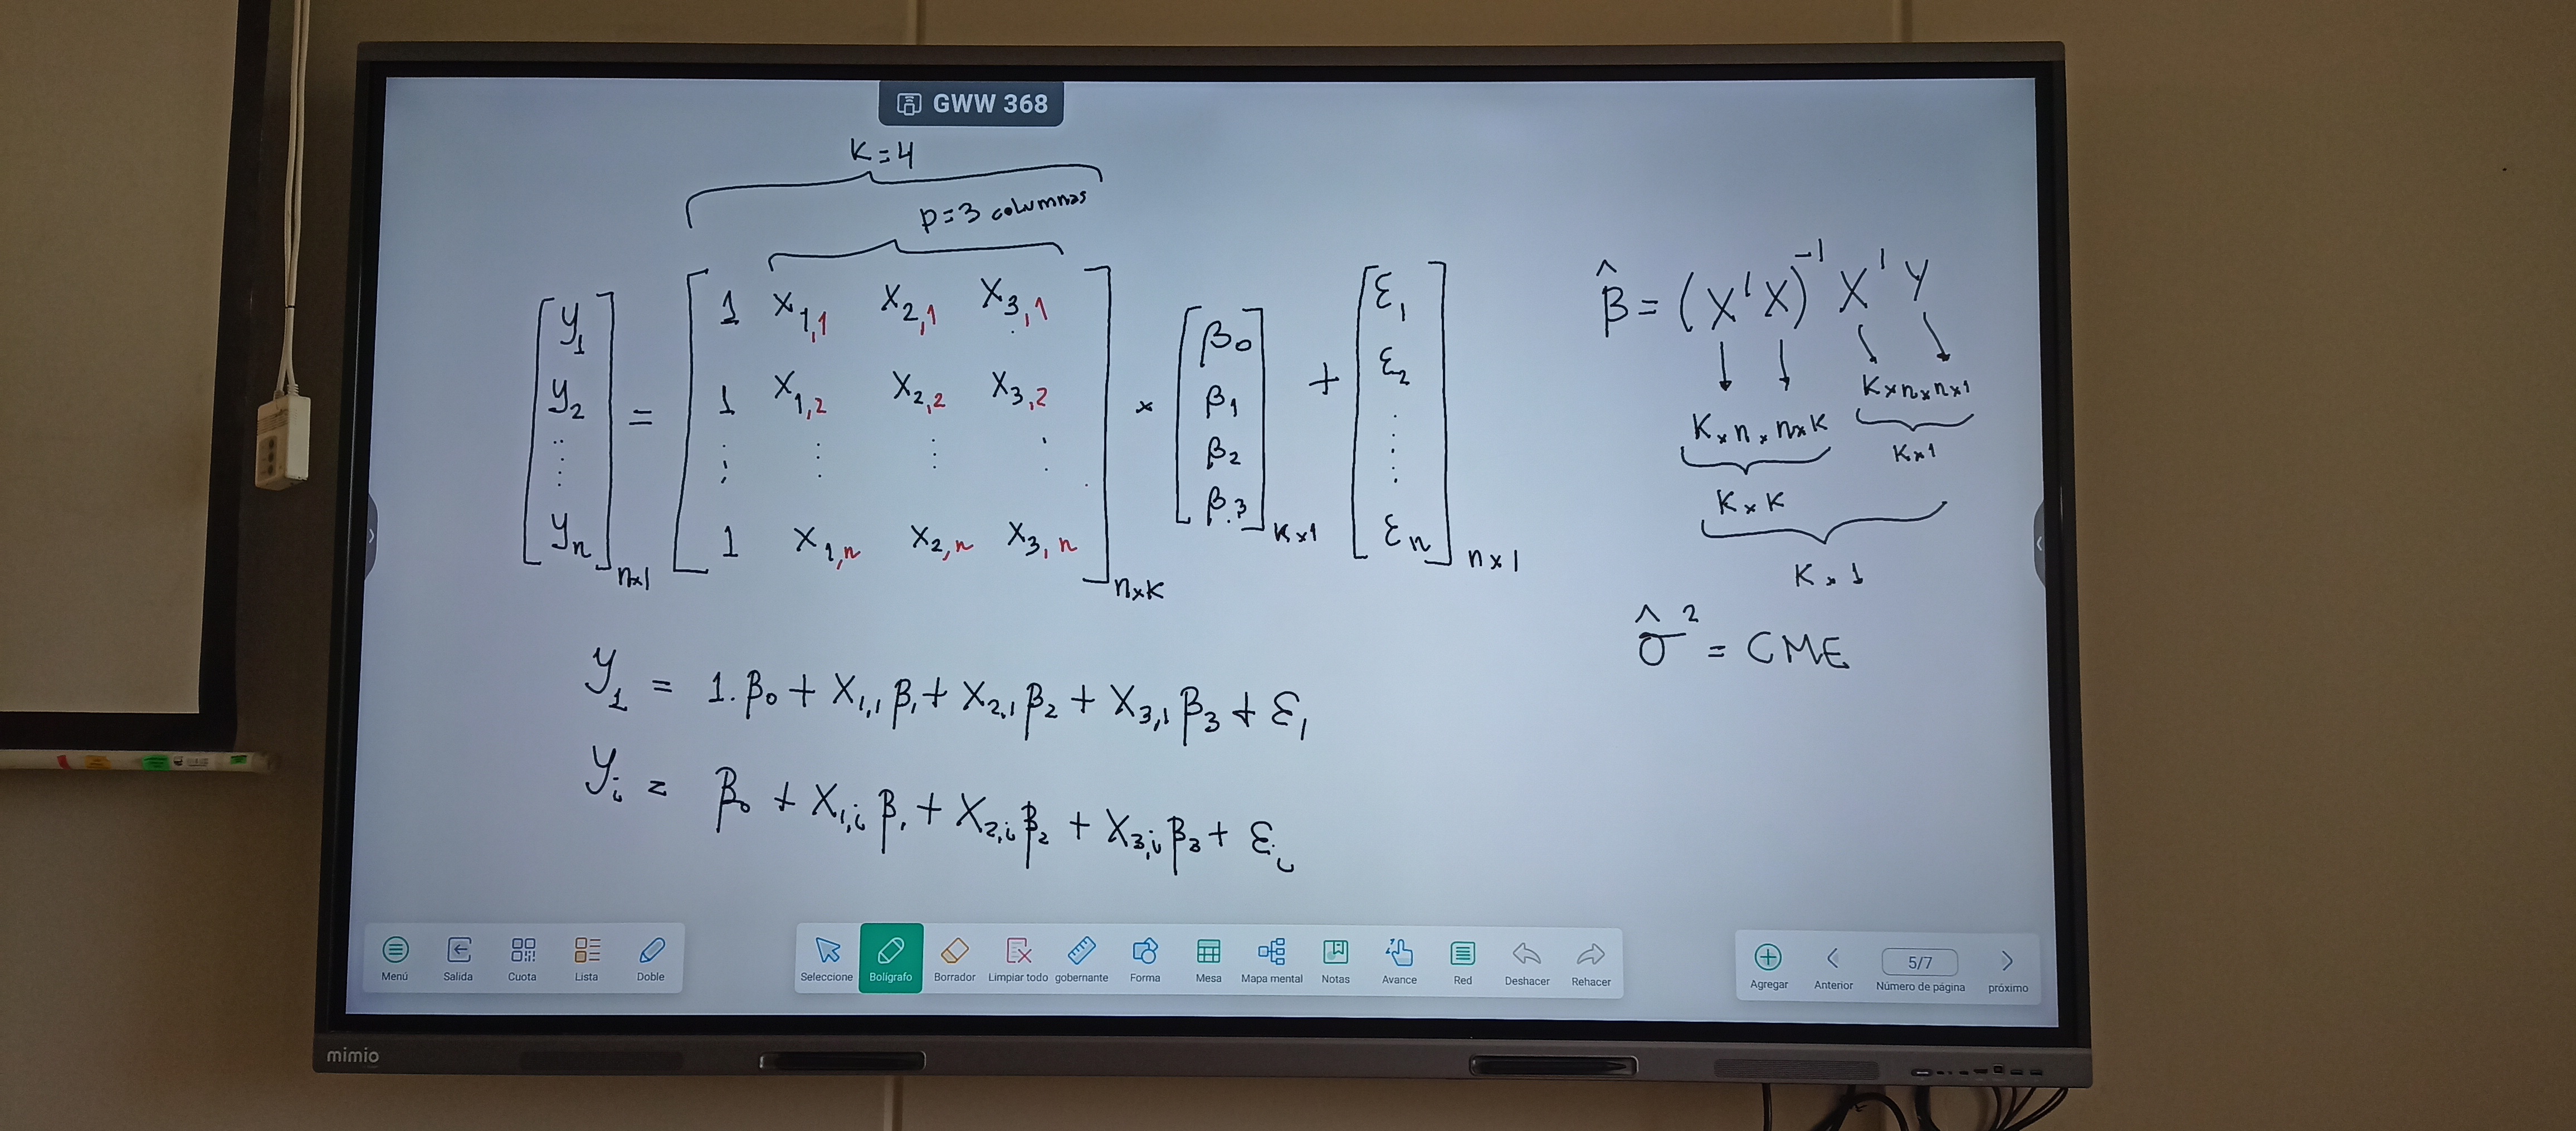 GWW 368
K=4
p=3 columnas
[y₁ y₂ ⋮ yₙ]ₙₓ₁ = [1 X₁,₁ X₂,₁ X₃,₁
1 X₁,₂ X₂,₂ X₃,₂
⋮ ⋮ ⋮ ⋮
1 X₁,ₙ X₂,ₙ X₃,ₙ]n×K × [β₀ β₁ β₂ β₃]K×1 + [ε₁ ε₂ ⋮ εₙ]n×1
y₁ = 1.β₀ + X₁,₁ β₁ + X₂,₁ β₂ + X₃,₁ β₃ + ε₁
yᵢ = β₀ + X₁,ᵢ β₁ + X₂,ᵢ β₂ + X₃,ᵢ β₃ + εᵢ
β̂ = (X'X)⁻¹ X'Y
K×n × n×K
K×n×n×1
K×K
K×1
K×1
σ̂² = CME
Menú Salida Cuota Lista Doble
Seleccione Bolígrafo Borrador Limpiar todo gobernante Forma Mesa Mapa mental Notas Avance Red Deshacer Rehacer
5/7
Agregar Anterior Número de página próximo
mimio